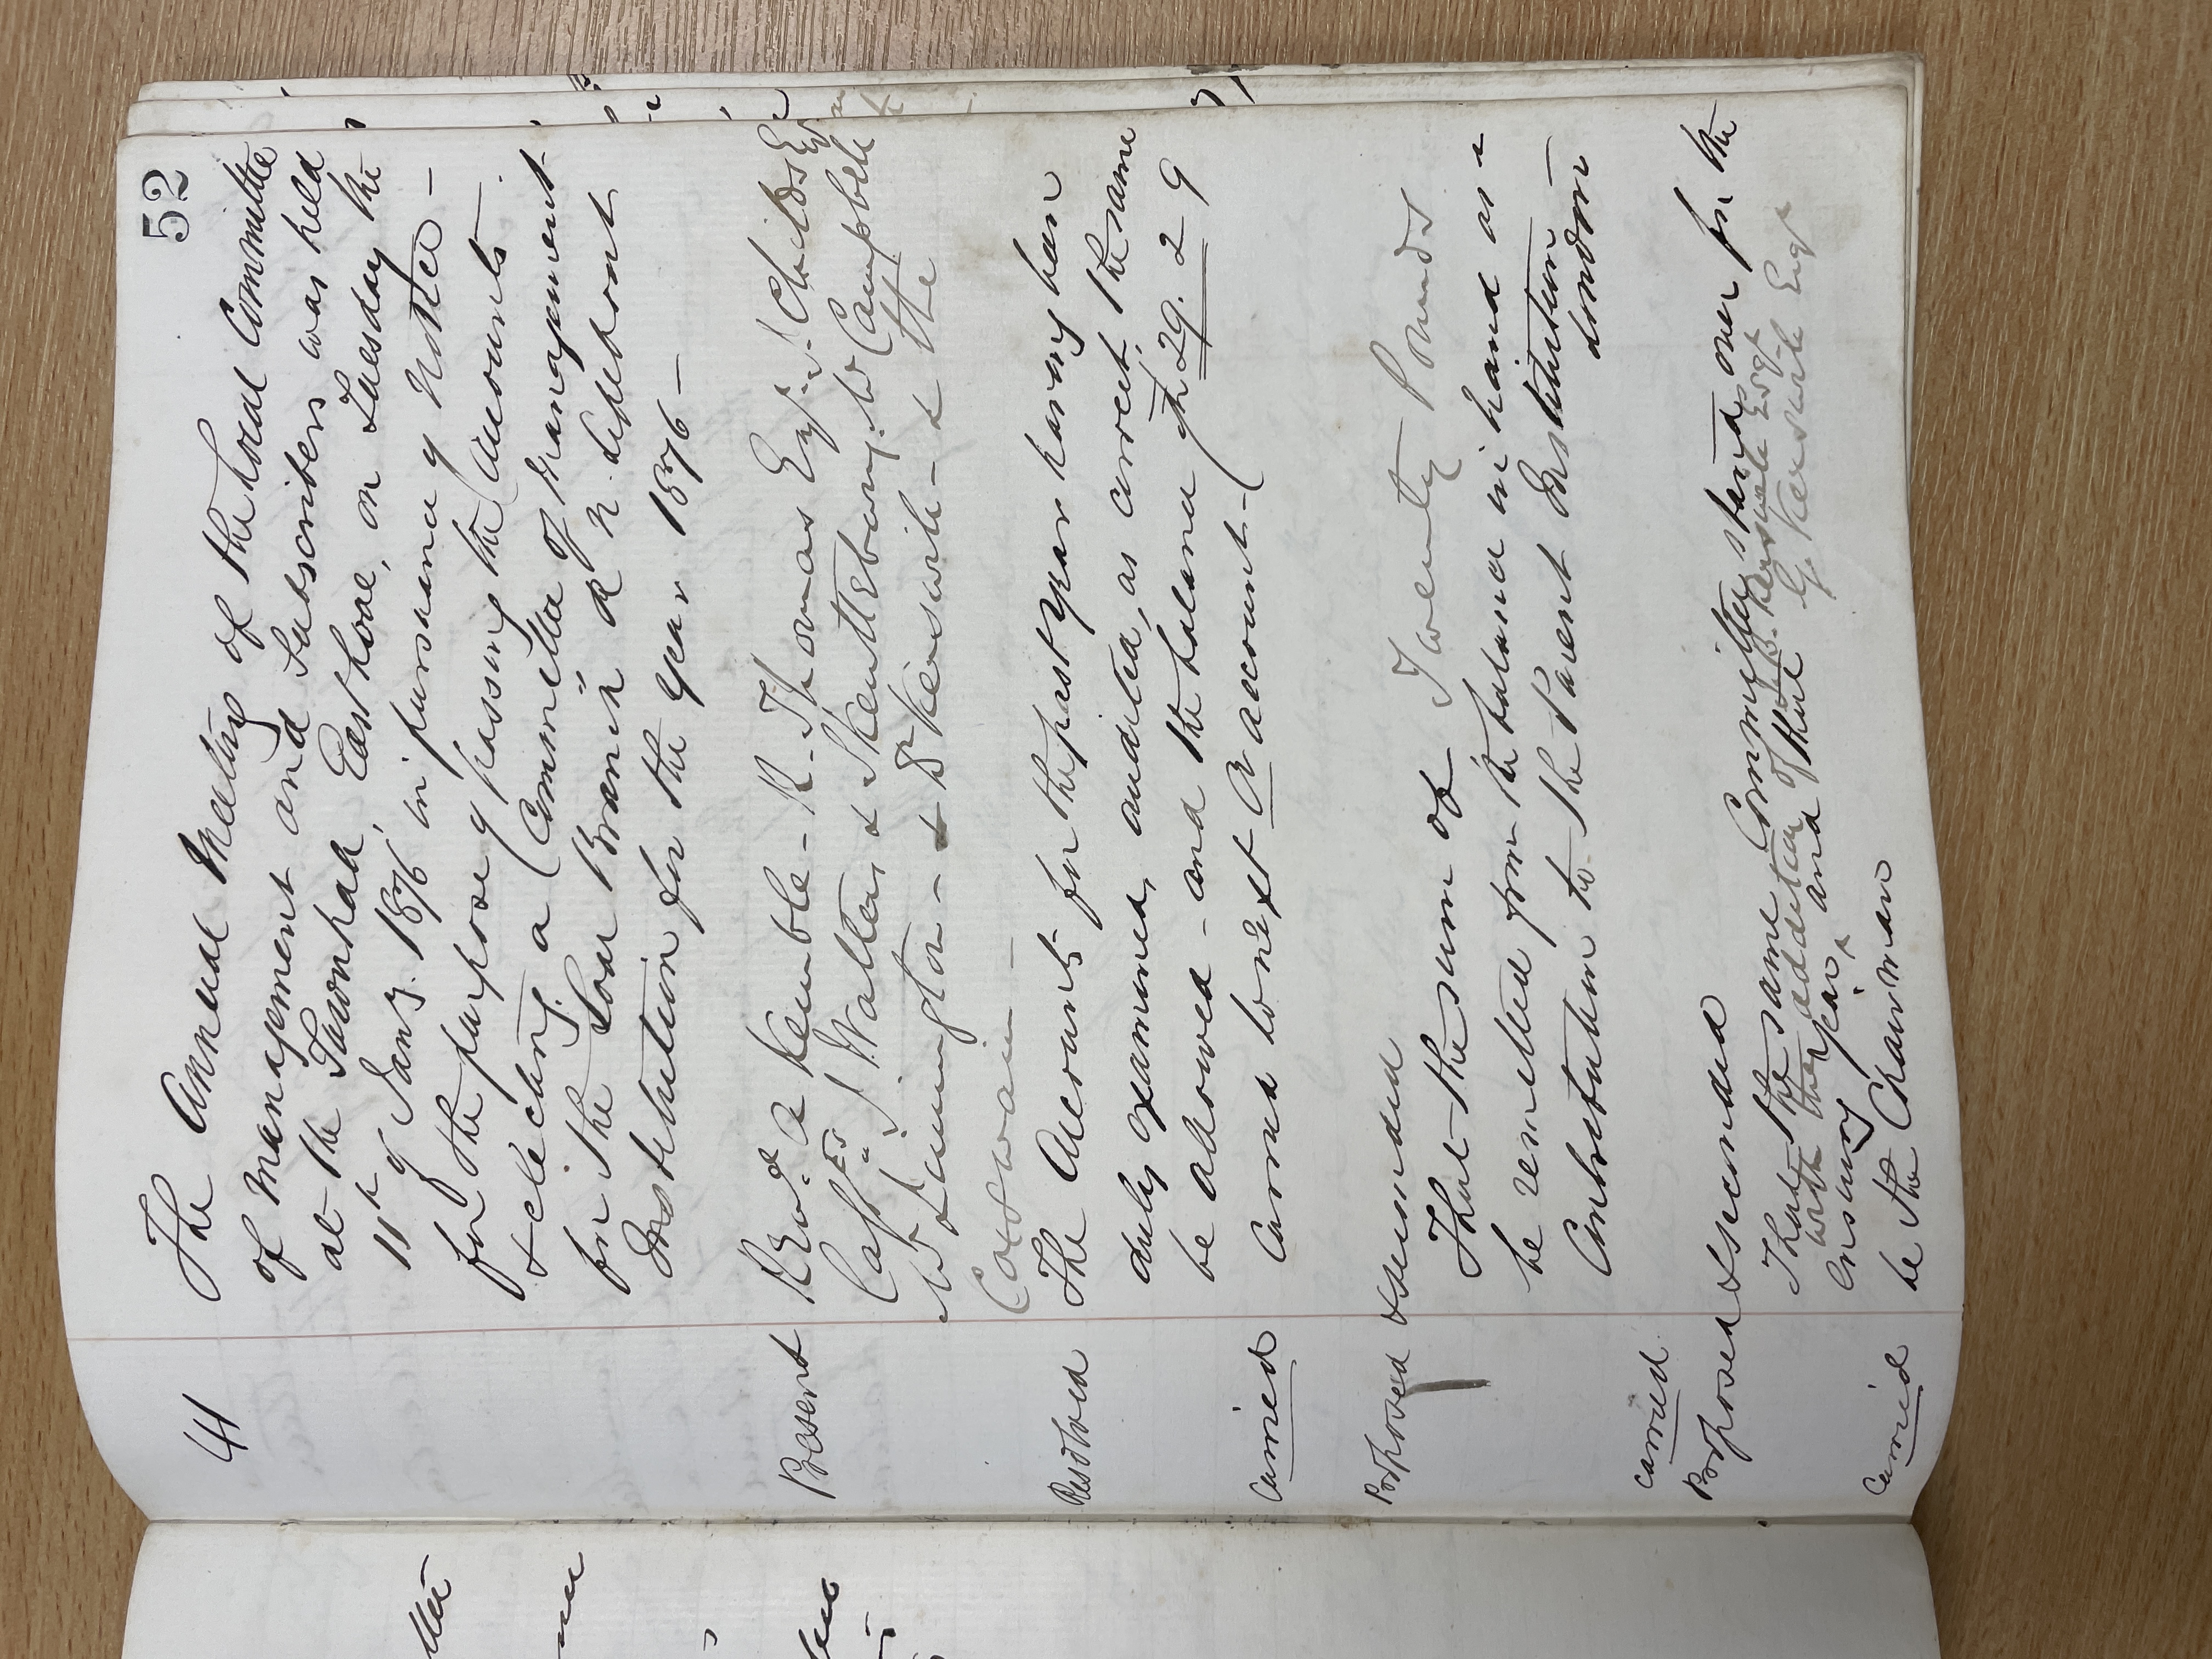 52
41
The Annual Meeting of the Local Committee
of Management and Subscribers was held
at the Townhall, East Looe, on Tuesday the
11th of Jany. 1876 in pursuance of Notice
for the purpose of passing the Accounts
& electing a Committee of Management
for the Looe Branch R N. Lifeboat
Institution for the year 1876 —
Present Revd. A Kemble - R. Thomas Esq.
Capts J. Walters & Shuttlebury. W Campbell
& Dr Kerswill - & the
Coxswain —
Resolved The Accounts for the past year having been
duly examined, audited, as correct, the same
be allowed - and the balance of £ 29. 2 9
Carried Carried to next a account -
Proposed & seconded
That the sum of Twenty Pounds
be remitted from the balance in hand as a
Contribution to the Parent Institution —
London
carried
Proposed & seconded
That the same Committee stand over for the
with the addition of Kerswill Esqr
G. Kerswill Esqr
ensuing year, and that
be the Chairman
Carried